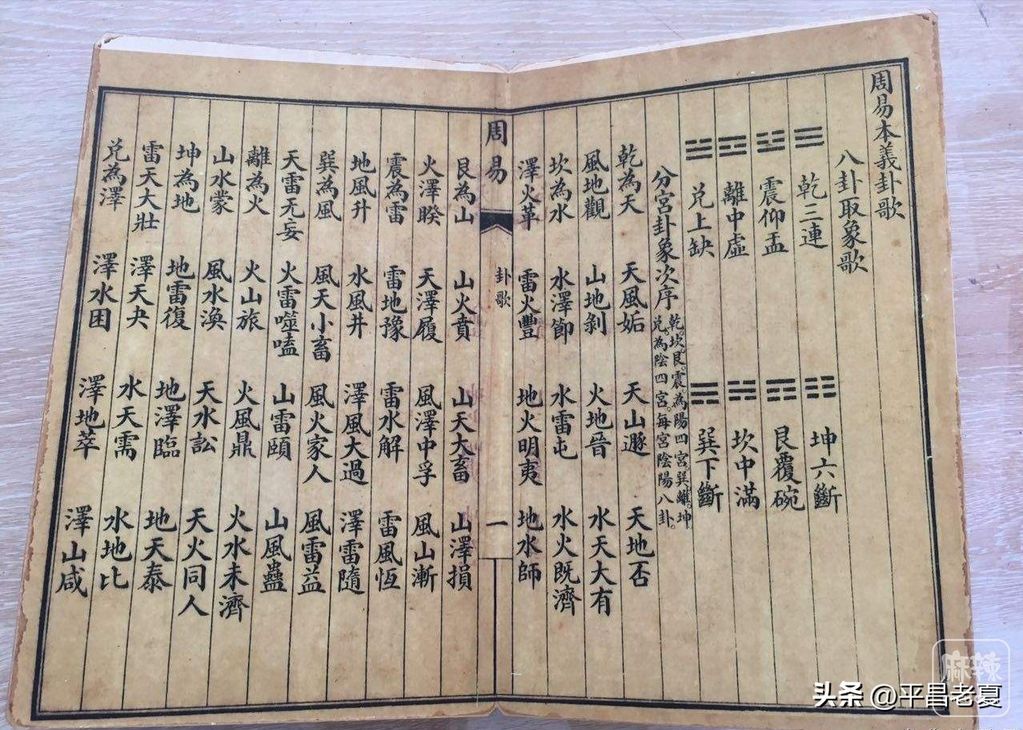 周易本義卦歌
八卦取象歌
☰ 乾三連 ☷ 坤六斷
☳ 震仰盂 ☶ 艮覆碗
☲ 離中虛 ☵ 坎中滿
☱ 兌上缺 ☴ 巽下斷
分宮卦象次序 乾坎艮震為陽四宮巽離坤
兌為陰四宮。每宮陰陽八卦。
乾為天 天風姤 天山遯 天地否
風地觀 山地剝 火地晉 水天大有
坎為水 水澤節 水雷屯 水火既濟
澤火革 雷火豐 地火明夷 地水師
周易 卦歌 一
艮為山 山火賁 山天大畜 山澤損
火澤睽 天澤履 風澤中孚 風山漸
震為雷 雷地豫 雷水解 雷風恆
地風升 水風井 澤風大過 澤雷隨
巽為風 風天小畜 風火家人 風雷益
天雷无妄 火雷噬嗑 山雷頤 山風蠱
離為火 火山旅 火風鼎 火水未濟
山水蒙 風水渙 天水訟 天火同人
坤為地 地雷復 地澤臨 地天泰
雷天大壯 澤天夬 水天需 水地比
兌為澤 澤水困 澤地萃 澤山咸
麻辣
头条 @平昌老夏